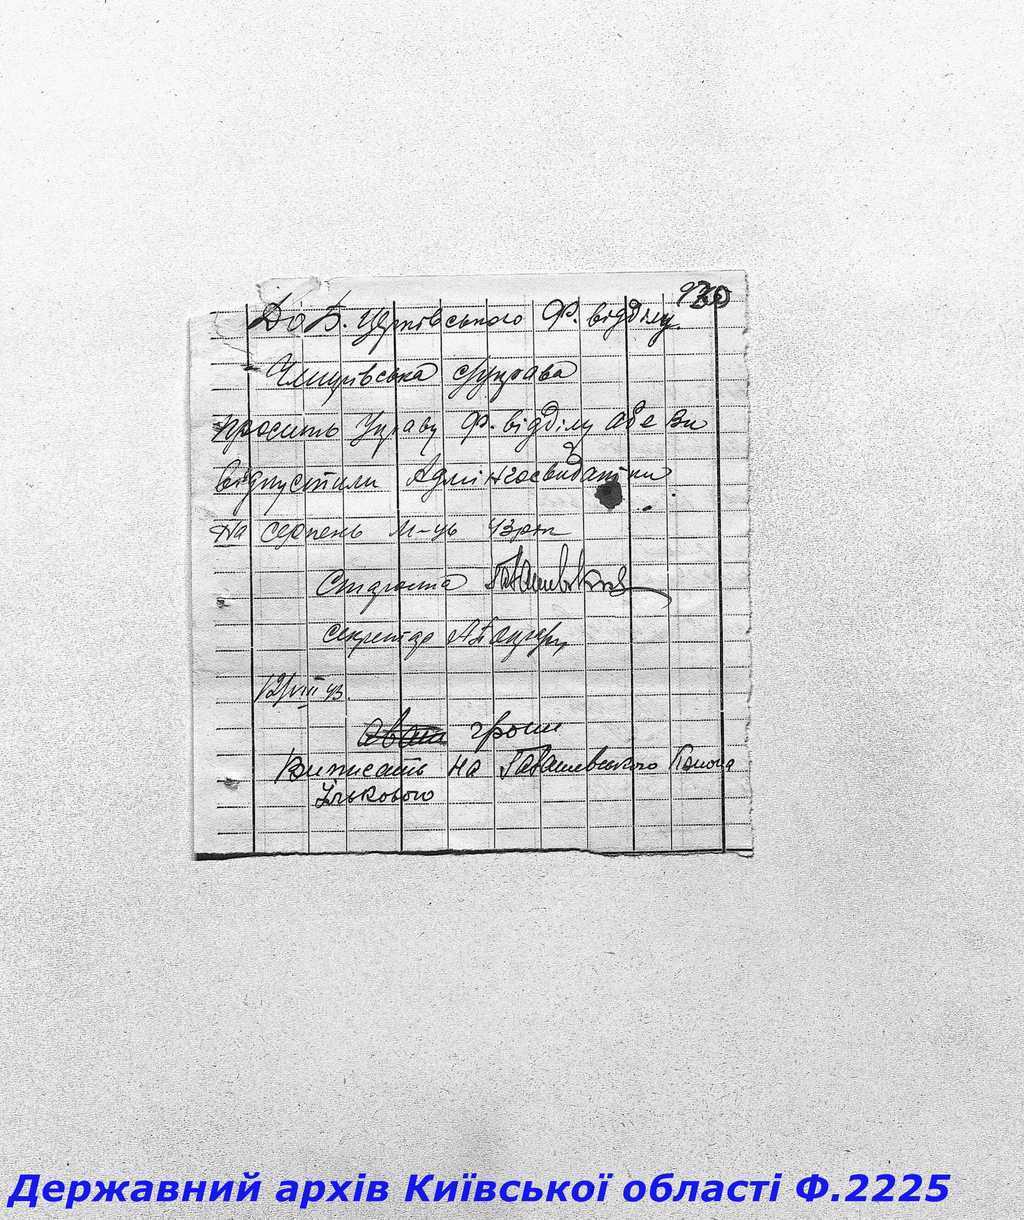 До Б. Церківського Ф. відділу
с/управа
просить Управу Ф. відділу аби Ви
відпустили Адмін госвидатки
на серпень м-ць 43 р
Староста
Секретар
12/VIII 43.
гроші
Виписать на Гавашевського
Державний архів Київської області Ф.2225